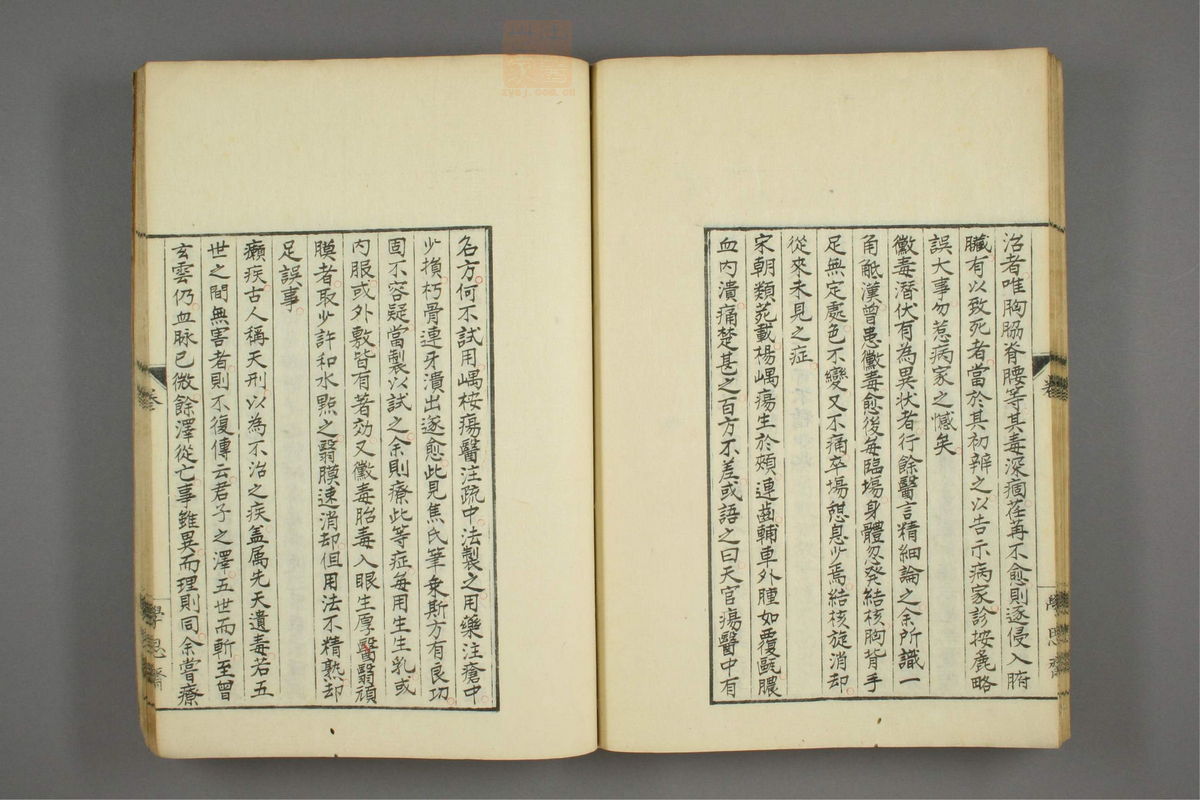 治者唯胸脇脊腰等其毒深痼荏苒不愈則逐侵入腑
臟有以致死者當於其初辨之以告示病家診按麁略
誤大事勿惹病家之憾矣
黴毒潛伏有為異状者行餘醫言精細論之余所識一
角觝漢曾患黴毒愈後每臨塲身體忽發結核胸背手
足無定處色不變又不痛卒塲憇息少焉結核旋消却
從來未見之症
宋朝類苑載楊嵎瘍生於頰連齒輔車外腫如覆甌膿
血內潰痛楚甚之百方不差或語之曰天官瘍醫中有
名方何不試用嵎桉瘍醫注疏中法製之用藥注瘡中
少損朽骨連牙潰出遂愈此見焦氏筆乗斯方有良功
固不容疑當製以試之余則療此等症每用生生乳或
內服或外敷皆有著効又黴毒胎毒入眼生厚翳翳頑
膜者取少許和水點之翳膜速消却但用法不精熟却
足誤事
癩疾古人稱天刑以為不治之疾盖属先天遺毒若五
世之間無害者則不復傳云君子之澤五世而斬至曾
玄雲仍血脉已微餘澤從亡事雖異而理則同余嘗療
卷
學思齋
zysj.com.cn